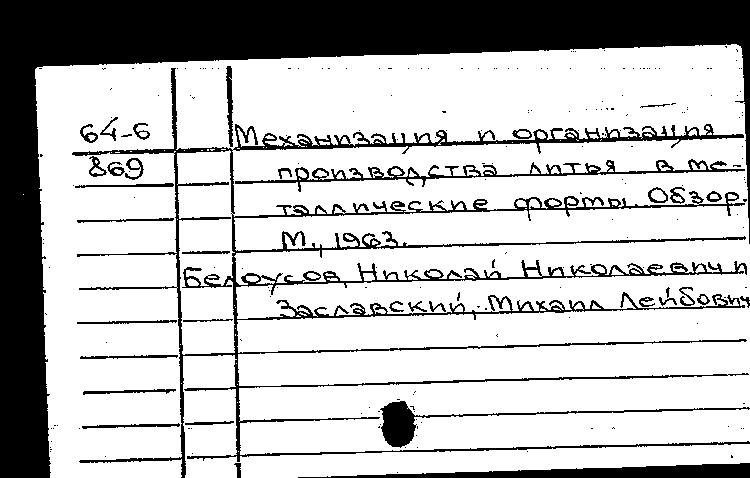 64-6 Механизация и организация
869 производства литья в ме-
таллические формы. Обзор.
М., 1963.
Белоусов, Николай Николаевич и
Заславский, Михаил Лейбович